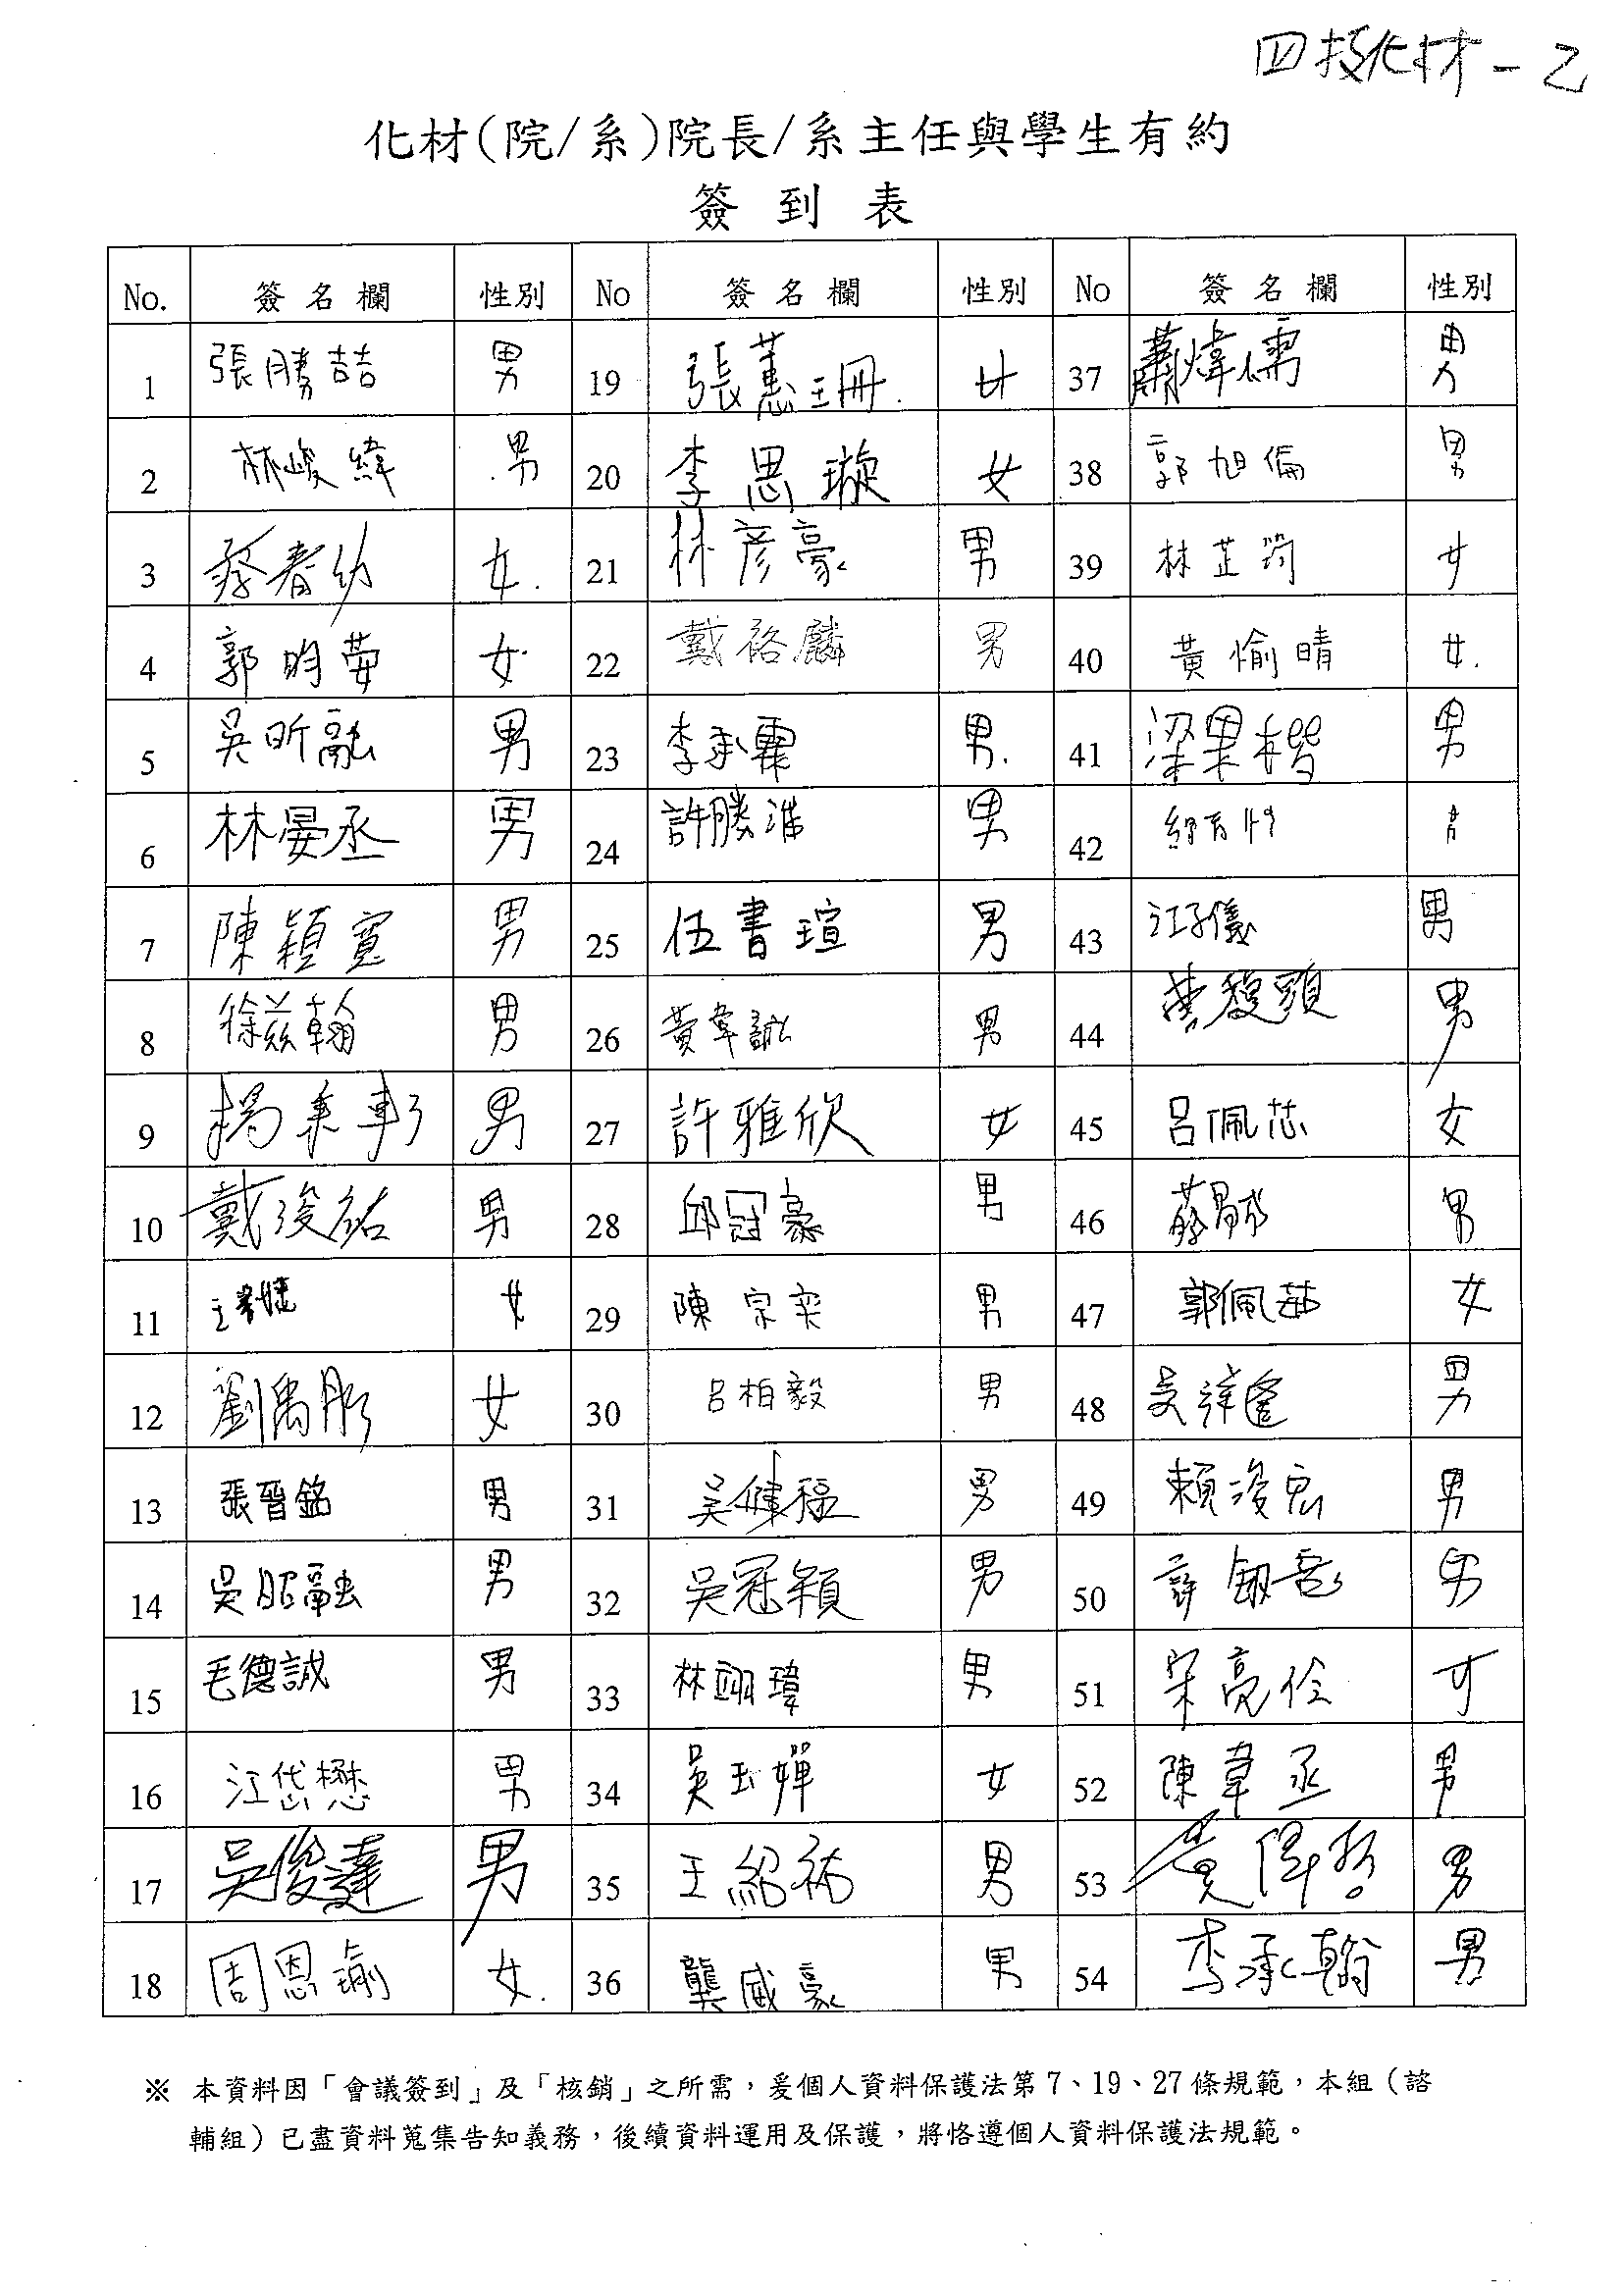 四技化材-乙
化材(院/系)院長/系主任與學生有約
簽到表
No. 簽名欄 性別 No 簽名欄 性別 No 簽名欄 性別
1 張勝喆 男 19 張蕙珊 女 37 蕭煒儒 男
2 林峻緯 男 20 李思璇 女 38 郭旭倫 男
3 蔡春幼 女 21 林彥豪 男 39 林芷筠 女
4 郭昀 女 22 戴裕麟 男 40 黃愉晴 女
5 吳昕融 男 23 李承霖 男 41 梁果楷 男
6 林晏丞 男 24 許勝淮 男 42
7 陳穎寬 男 25 伍書瑄 男 43 江子儀 男
8 徐茲翰 男 26 黃韋誠 男 44 男
9 楊秉軒 男 27 許雅欣 女 45 呂佩芯 女
10 戴浚祐 男 28 邱冠豪 男 46 男
11 王 女 29 陳宗奕 男 47 郭佩茹 女
12 劉禹彤 女 30 呂柏毅 男 48 吳 男
13 張晉銘 男 31 吳健 男 49 賴浚宏 男
14 吳昭融 男 32 吳冠穎 男 50 男
15 毛德誠 男 33 林翊瑋 男 51 宋亮伶 女
16 江岱懋 男 34 吳玉嬋 女 52 陳韋丞 男
17 吳俊達 男 35 王紹祐 男 53 黃偉哲 男
18 周恩瑜 女 36 龔威豪 男 54 李承翰 男
※ 本資料因「會議簽到」及「核銷」之所需，爰個人資料保護法第 7、19、27 條規範，本組（諮
輔組）已盡資料蒐集告知義務，後續資料運用及保護，將恪遵個人資料保護法規範。